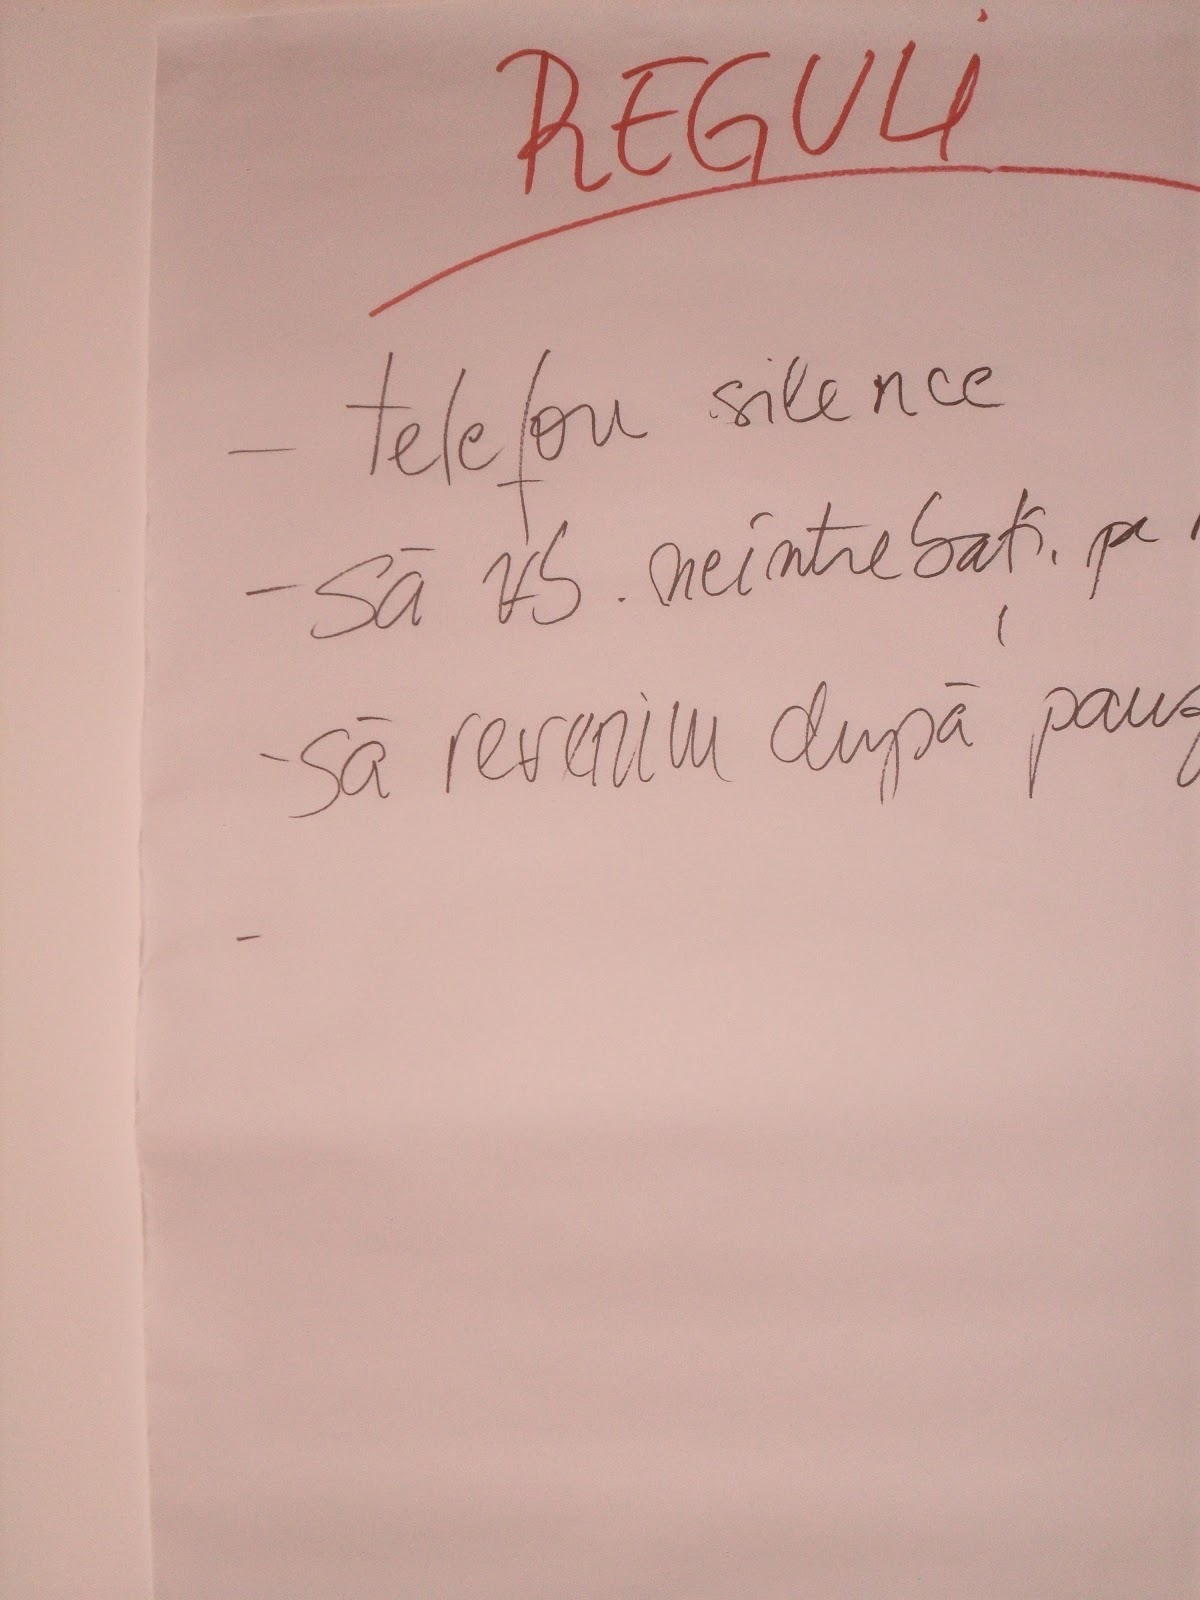 REGULI
- telefon silence
- să vb. neîntrebați. pe
- să revenim după pauz
-